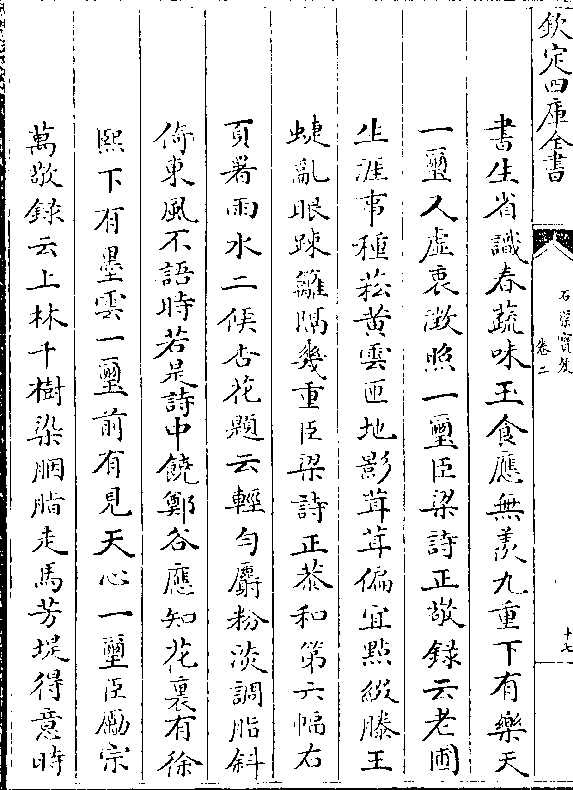 欽定四庫全書
石渠寶笈
卷二
十七
書生省識春蔬味玉食應無羨九重下有樂天
一璽又虛衷澂照一璽臣梁詩正敬錄云老圃
生涯事種菘黄雲匝地影茸茸偏宜點綴滕王
蜨亂眼踈籬隔幾重臣梁詩正恭和第六幅右
頁署雨水二候杏花題云輕勻麝粉淡調脂斜
倚東風不語時若是詩中饒鄭谷應知花裏有徐
熙下有墨雲一璽前有見天心一璽臣勵宗
萬敬録云上林千樹染胭脂走馬芳堤得意時